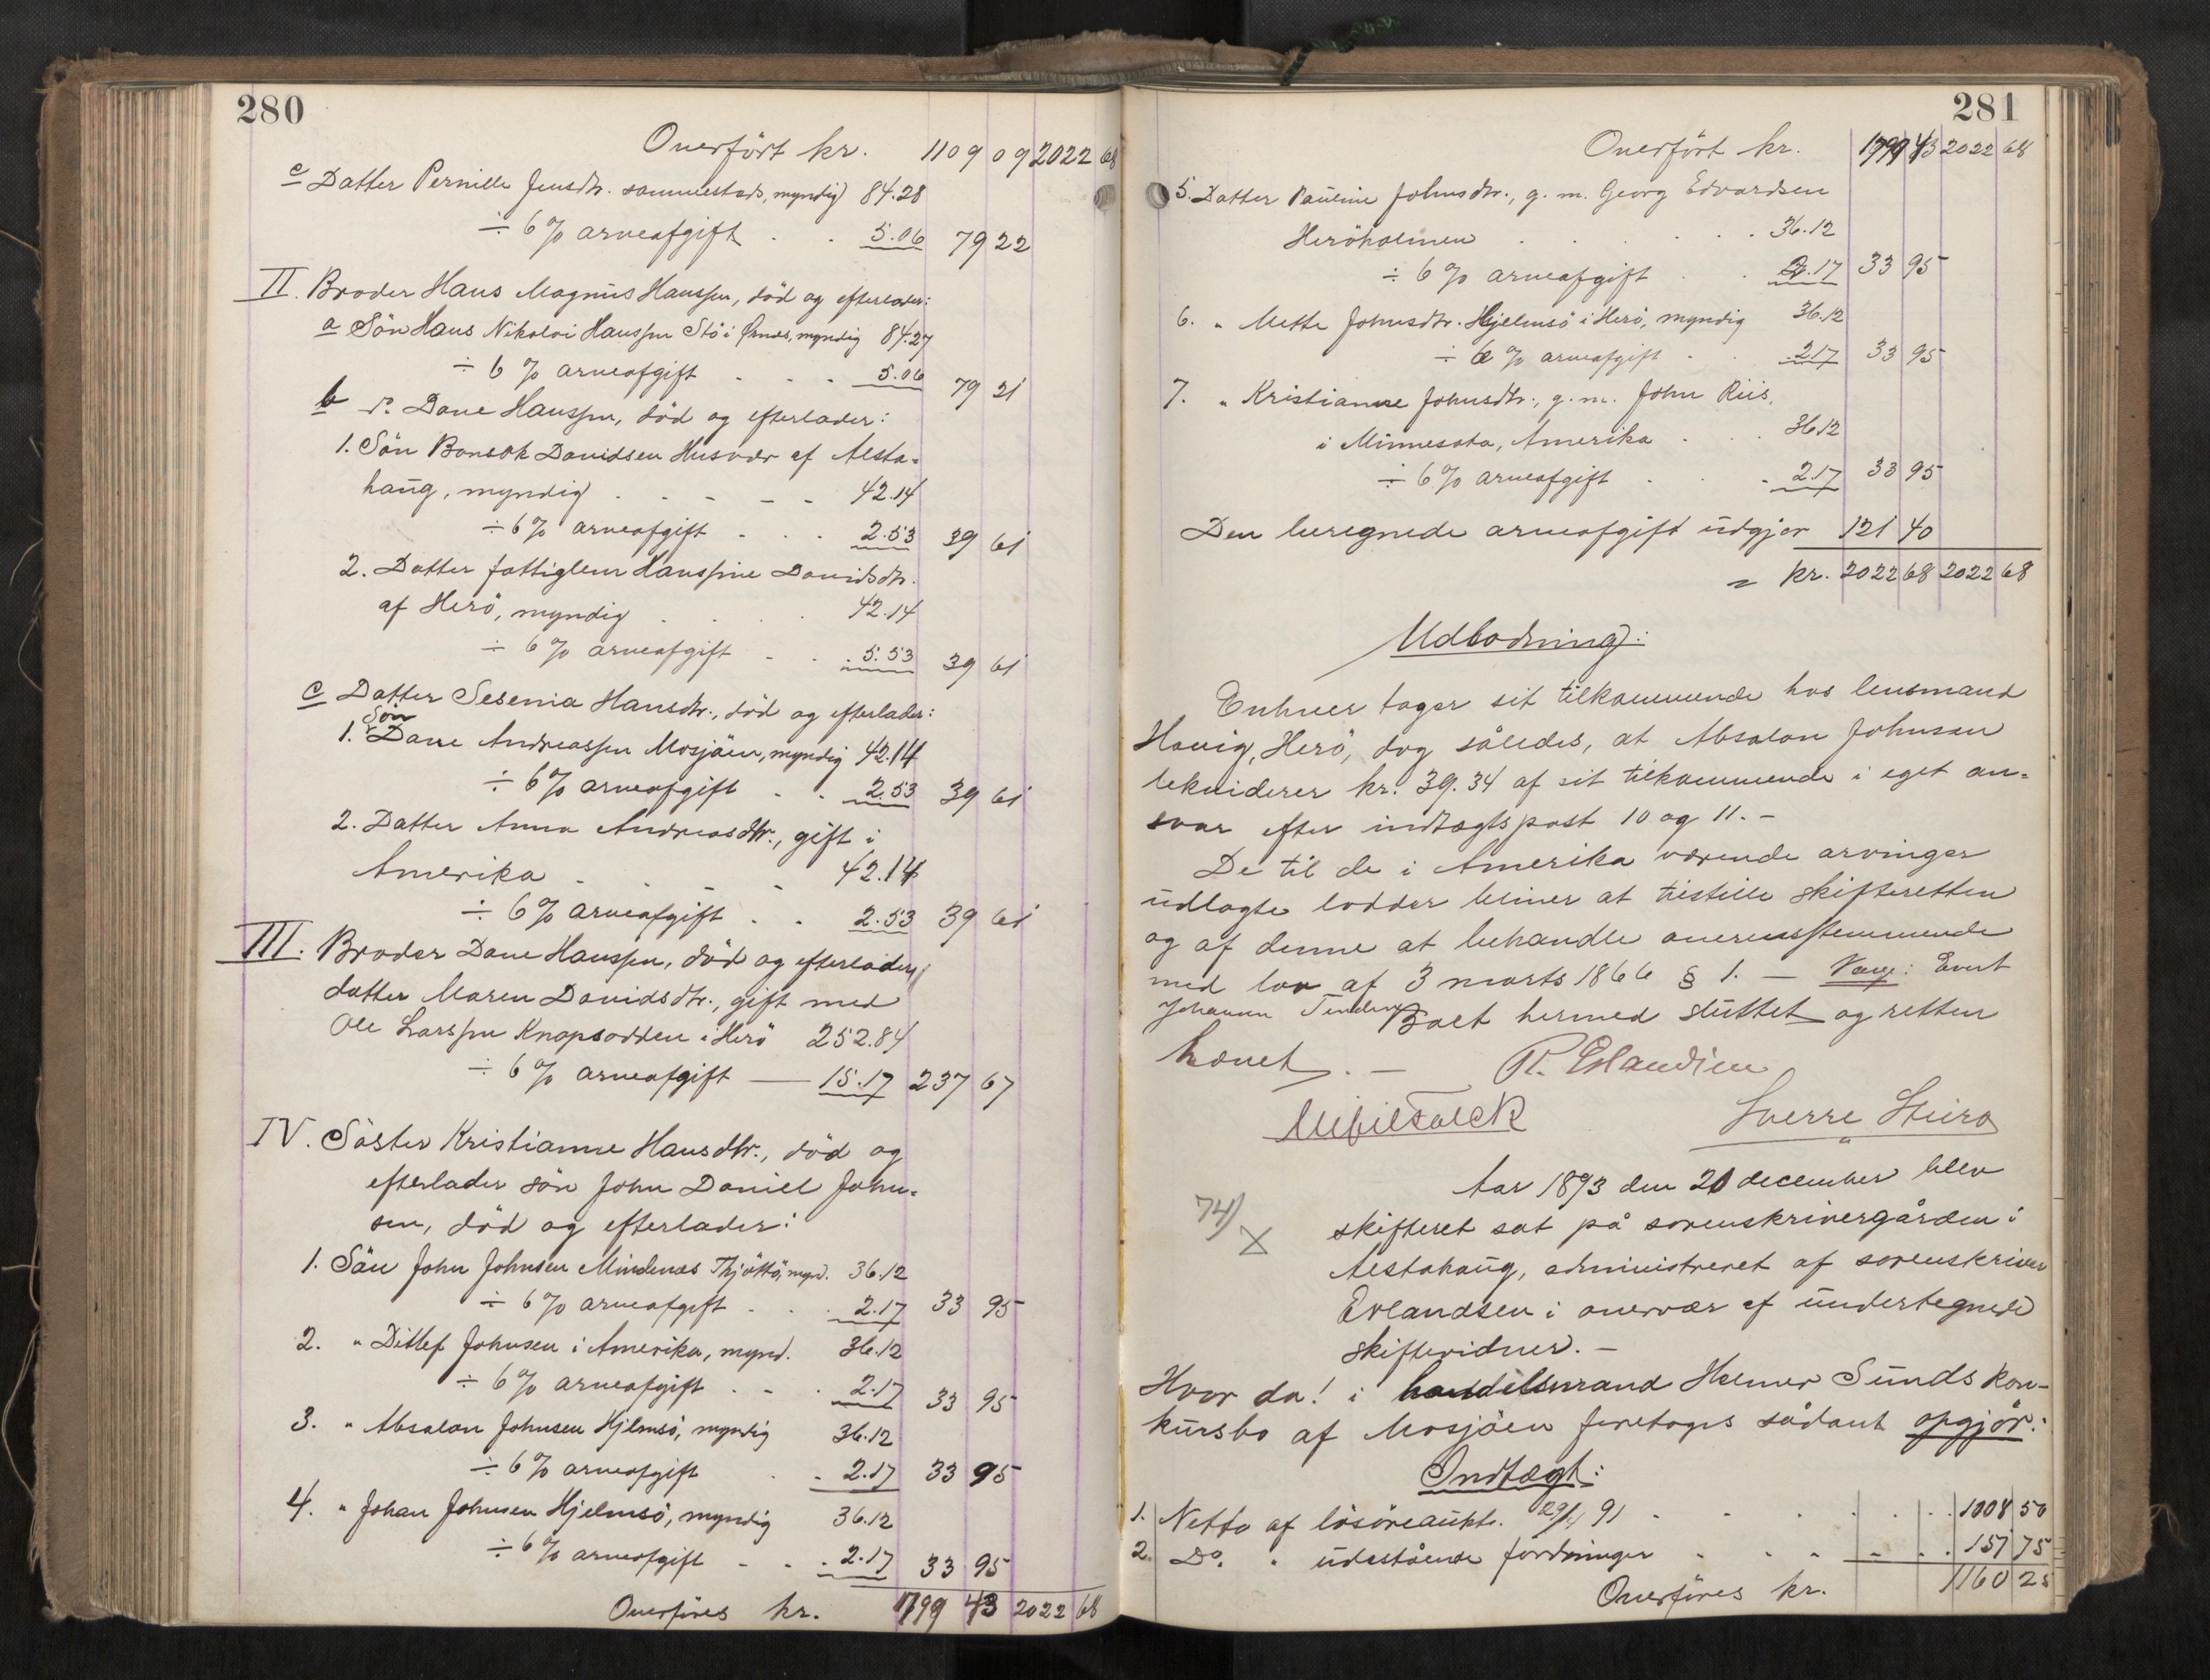 280
Overført kr. 1109 09 2022 68
c Datter Pernille Jensdtr. sammesteds, myndig 84.28
÷ 6% arveafgift . . 5.06 79 22
II. Broder Hans Magnus Hanssen, död og efterlader:
a Sön Hans Nikolai Hanssen Stö i , myndig 84.27
÷ 6% arveafgift . . . 5.06 79 21
b do. Dane Hanssen, död og efterlader:
1. Sön Bonsak Davidsen Husvær af Alsta-
haug, myndig . . . . . 42.14
÷ 6% arveafgift . . . 2.53 39 61
2. Datter fattiglem Hanssine Davidsdtr.
af Herö, myndig . . . . 42.14
÷ 6% arveafgift . . . 5.53 39 61
c Datter Sesenia Hansdtr., död og efterlader:
1. Sön Dane Andreassen Mosjöen, myndig 42.14
÷ 6% arveafgift . . 2.53 39 61
2. Datter Anna Andreasdtr., gift i
Amerika . . . . 42.14
÷ 6% arveafgift . . 2.53 39 61
III. Broder Dane Hanssen, död og efterlader
datter Maren Davidsdtr., gift med
Ole Larssen Knapsodden i Herö 252.84
÷ 6% arveafgift — 15.17 237 67
IV. Söster Kristianne Hansdtr., död og
efterlader sön John Daniel John-
sen, död og efterlader:
1. Sön John Johnsen Mindenes Thjöttö, mynd. 36.12
÷ 6% arveafgift . . . 2.17 33 95
2. " Ditlef Johnsen i Amerika, mynd. 36.12
÷ 6% arveafgift . . . 2.17 33 95
3. " Absalon Johnsen Hjelmsö, myndig 36.12
÷ 6% arveafgift . . 2.17 33 95
4. " Johan Johnsen Hjelmsö, myndig 36.12
÷ 6% arveafgift . . . 2.17 33 95
Overføres kr. 1799 43 2022 68
281
Overfört kr. 1799 43 2022 68
5. Datter Pauline Johnsdtr., g. m. Georg Edvardsen
Heröholmen . . . . . . 36.12
÷ 6% arveafgift . . 2.17 33 95
6. " Mette Johnsdtr. Hjelmsö i Herö, myndig 36.12
÷ 6% arveafgift . . 2.17 33 95
7. " Kristianne Johnsdtr., g. m. John Riis,
i Minnesota, Amerika . . . 36.12
÷ 6% arveafgift . . . 2.17 33 95
Den beregnede arveafgift udgjör 121 40
= kr. 2022 68 2022 68
Udlodning:
Enhver tager sit tilkommende hos lensmand
Havig, Herö, dog således, at Absalon Johnsen
lekviderer kr. 39.34 af sit tilkommende i eget an-
svar efter indtægtspost 10 og 11. -
De til de i Amerika værende arvinger
udlagte lodder bliver at tilstille skifteretten
og af denne at behandle overensstemmende
med lov af 3 marts 1866 § 1. — Evert
Johannn
Boet hermed sluttet og retten
hævet. —
Sverre
74) X
Aar 1893 den 21 december blev
skifteret sat på sorenskrivergården i
Alstahaug, administreret af sorenskriver
Erlandsen i overvær af undertegnede
skiftevidner. -
Hvor da! i handelsmand Helmer Sunds kon-
kursbo af Mosjöen foretoges sådant opgjör:
Indtægt:
1. Netto af lösöreaukt. 91 . . . . . 1008 50
2. Do. " udestående fordringer . . . . . 151 75
Overføres kr. 1160 25